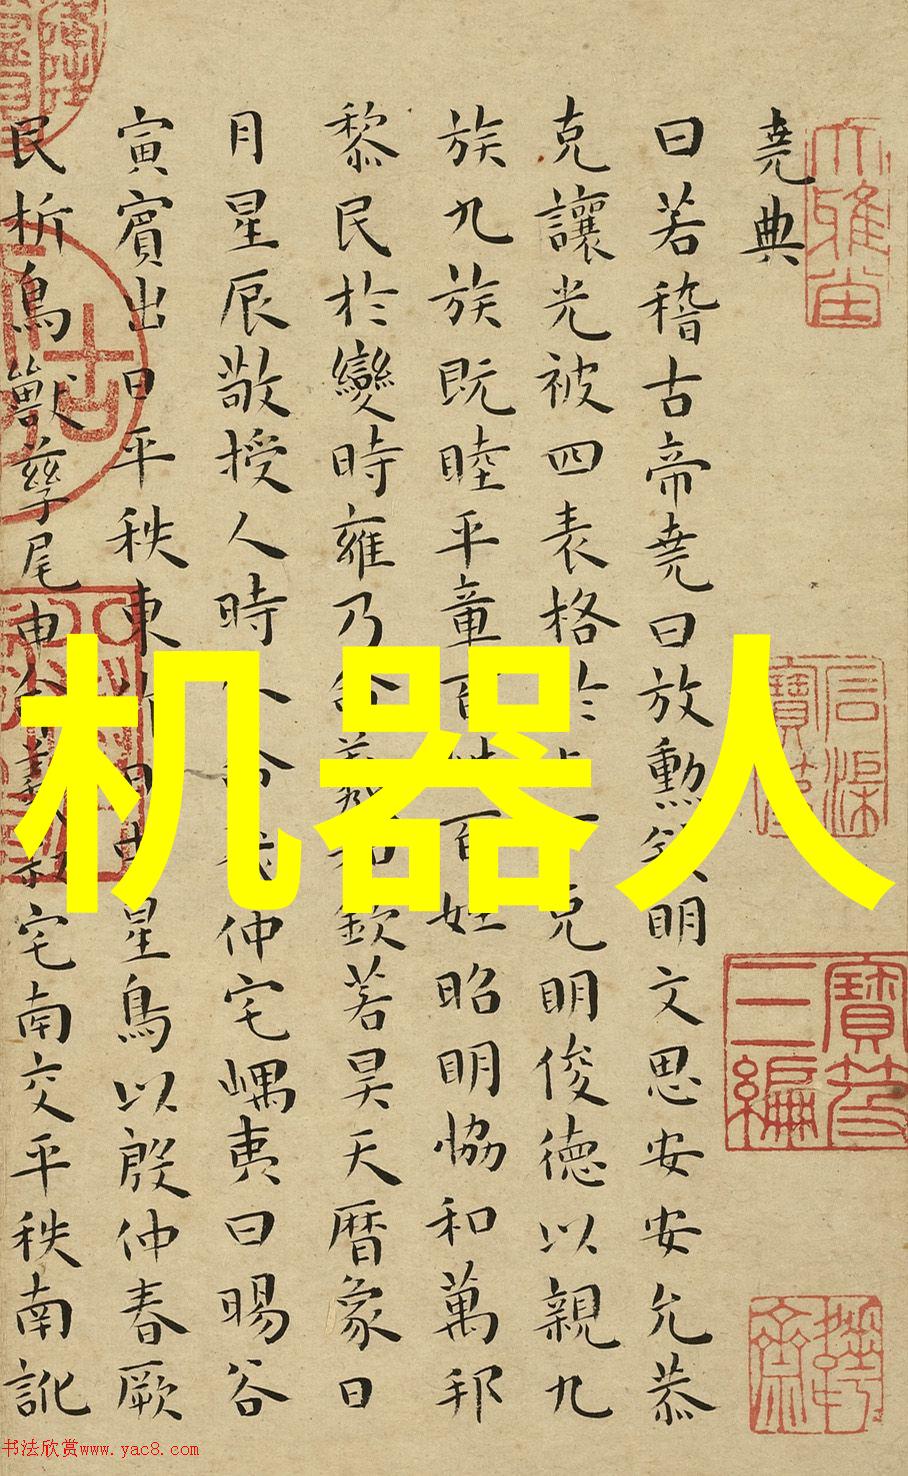 堯典
曰若稽古帝堯曰放勲欽明文思安安允恭
克讓光被四表格於上下克明俊德以親九
族九族既睦平章百姓百姓昭明協和萬邦
黎民於變時雍乃命羲和欽若昊天曆象日
月星辰敬授人時分命羲仲宅嵎夷曰暘谷
寅賓出日平秩東作日中星鳥以殷仲春厥
民析鳥獸孳尾申命羲叔宅南交平秩南訛
机器人
寶笈
三編
书法欣赏www.yac8.com